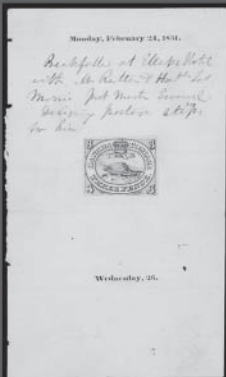 Monday, February 24, 1851.
Breakfast at Ellah's Hotel
with Mr Rutten & Hon. Jas
Morris Post Master General
Designing postage stamps
for him
CANADA POSTAGE
THREE PENCE
3
3
3
3
Wednesday, 26.